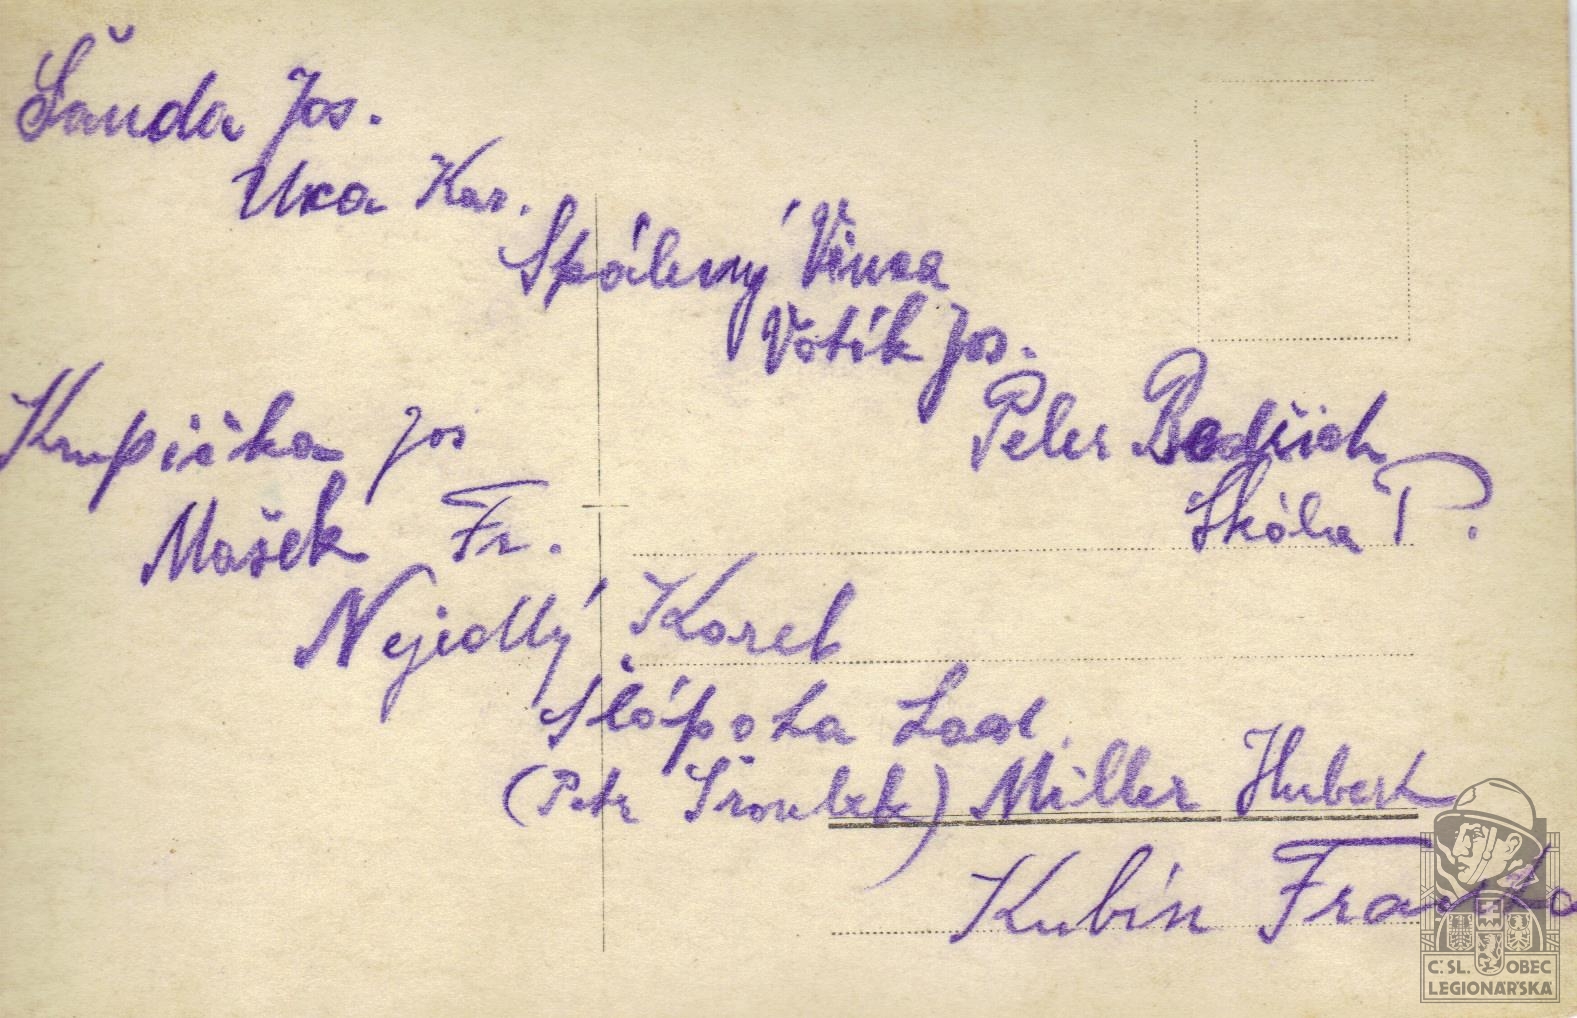 Šanda Jos.
Uxa Kar.
Spálený Vinca
Votík Jos.
Peler Bedřich
Skála P.
Krupička Jos
Mašek Fr.
Nejedlý Karel
Slápota Lad.
(Petr Šroubek) Miller Hubert
Kubín Franta
Č.SL. OBEC
LEGIONÁŘSKÁ